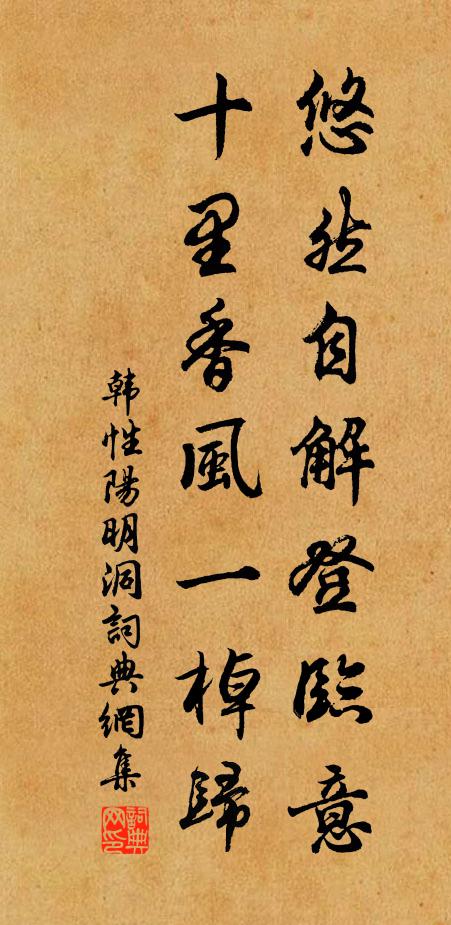 悠然自解登臨意
十里香風一棹歸
韩性陽明洞詞典網集
詞典網印